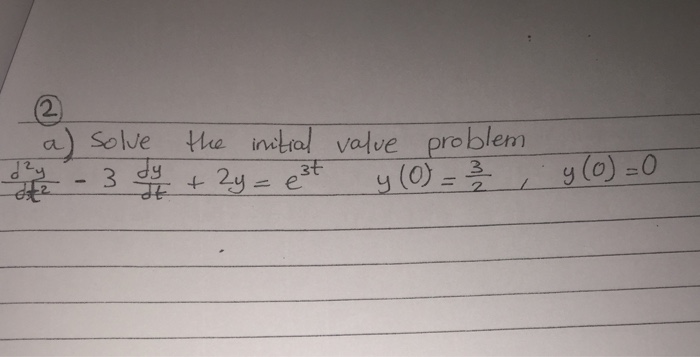 ②
a) Solve the initial value problem
d²y/dt² - 3 dy/dt + 2y = e^3t y(0) = 3/2 , y(0) = 0